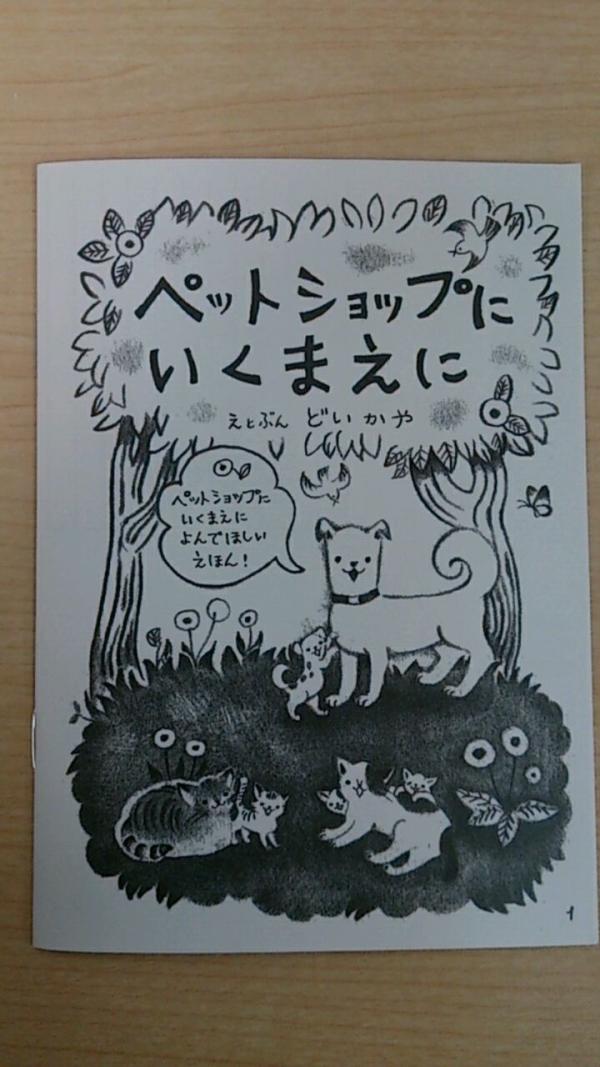 ペットショップに
いくまえに
えとぶん どいかや
ペットショップに
いくまえに
よんでほしい
えほん！
1